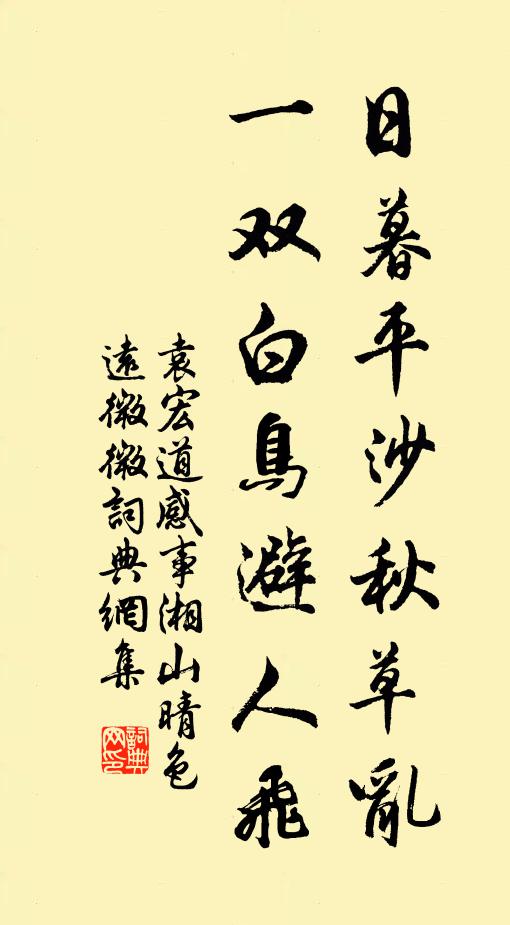 日暮平沙秋草亂
一双白鳥避人飛
袁宏道感事湘山晴色
遠微微詞典網集
詞典網印